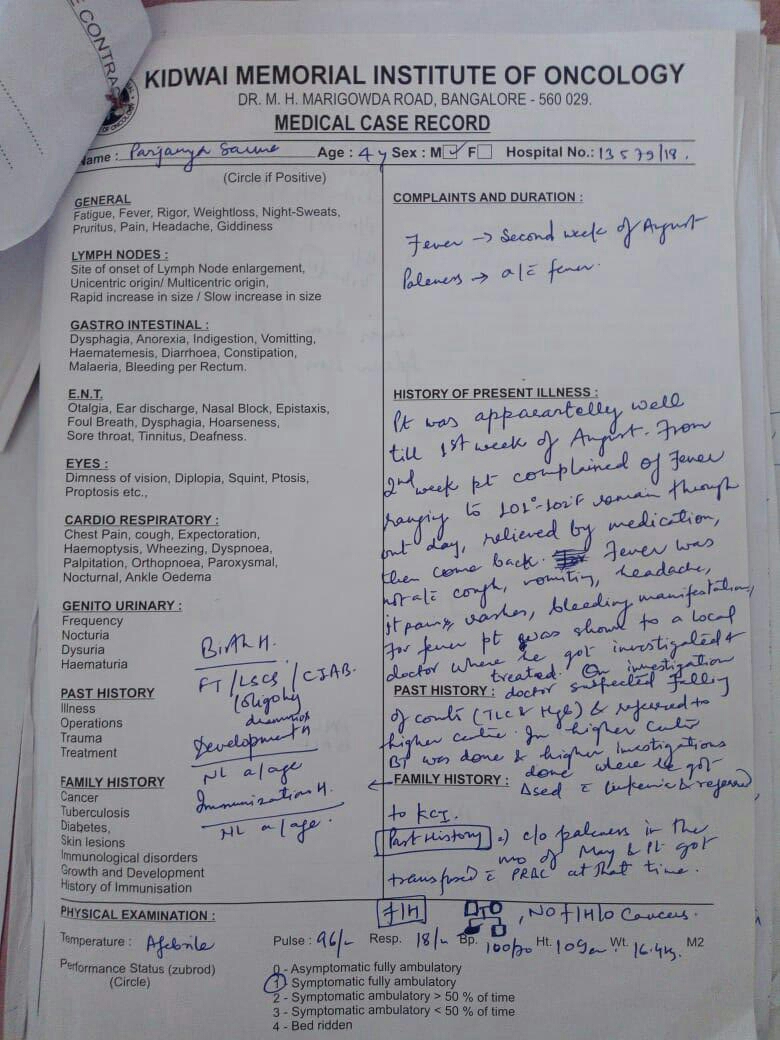 E CONTRAC
KIDWAI MEMORIAL INSTITUTE OF ONCOLOGY
DR. M. H. MARIGOWDA ROAD, BANGALORE - 560 029.
MEDICAL CASE RECORD
Name : Parjanya Age : 4 y Sex : M☑ F☐ Hospital No.: 13579/18.
(Circle if Positive)
GENERAL
Fatigue, Fever, Rigor, Weightloss, Night-Sweats,
Pruritus, Pain, Headache, Giddiness
LYMPH NODES :
Site of onset of Lymph Node enlargement,
Unicentric origin/ Multicentric origin,
Rapid increase in size / Slow increase in size
GASTRO INTESTINAL :
Dysphagia, Anorexia, Indigestion, Vomitting,
Haematemesis, Diarrhoea, Constipation,
Malaeria, Bleeding per Rectum.
E.N.T.
Otalgia, Ear discharge, Nasal Block, Epistaxis,
Foul Breath, Dysphagia, Hoarseness,
Sore throat, Tinnitus, Deafness.
EYES :
Dimness of vision, Diplopia, Squint, Ptosis,
Proptosis etc.,
CARDIO RESPIRATORY :
Chest Pain, cough, Expectoration,
Haemoptysis, Wheezing, Dyspnoea,
Palpitation, Orthopnoea, Paroxysmal,
Nocturnal, Ankle Oedema
GENITO URINARY :
Frequency
Nocturia
Dysuria
Haematuria
Birth H.
FT / LSCS / CIAB.
PAST HISTORY
Illness
Operations
Trauma
Treatment
Development H
NL a/age
FAMILY HISTORY
Cancer
Tuberculosis
Diabetes,
Skin lesions
Immunological disorders
Growth and Development
History of Immunisation
Immunization H.
NL a/age.
COMPLAINTS AND DURATION :
Fever → Second week of August
Paleness → a/c̄ fever.
HISTORY OF PRESENT ILLNESS :
Pt was apparantelly well
till 1st week of August. From
2nd week pt complained of Fever
ranging to 101°-102°F remain through
out day, relieved by medication,
then come back. Fever was
not a/c̄ cough, vomiting, headache,
jt pain, rashes, bleeding manifestation,
For fever pt was shown to a local
doctor where he got investigated &
treated. On investigation
PAST HISTORY : doctor suspected falling
of counts (TLC & Hgb) & referred to
higher centre. In higher centre
BT was done & higher investigations
FAMILY HISTORY : done where he got
Δsed c̄ leukemia & referred
to KCI.
Past History c/o paleness in the
mo of May & Pt got
transfused c̄ PRBC at that time.
F/H , NO F/H/O Cancers.
PHYSICAL EXAMINATION :
Temperature : Afebrile Pulse : 96/- Resp. 18/- Bp. Ht. 109cm Wt. 16.4kg. M2
Performance Status (zubrod)
(Circle)
0 - Asymptomatic fully ambulatory
1 - Symptomatic fully ambulatory
2 - Symptomatic ambulatory > 50 % of time
3 - Symptomatic ambulatory < 50 % of time
4 - Bed ridden